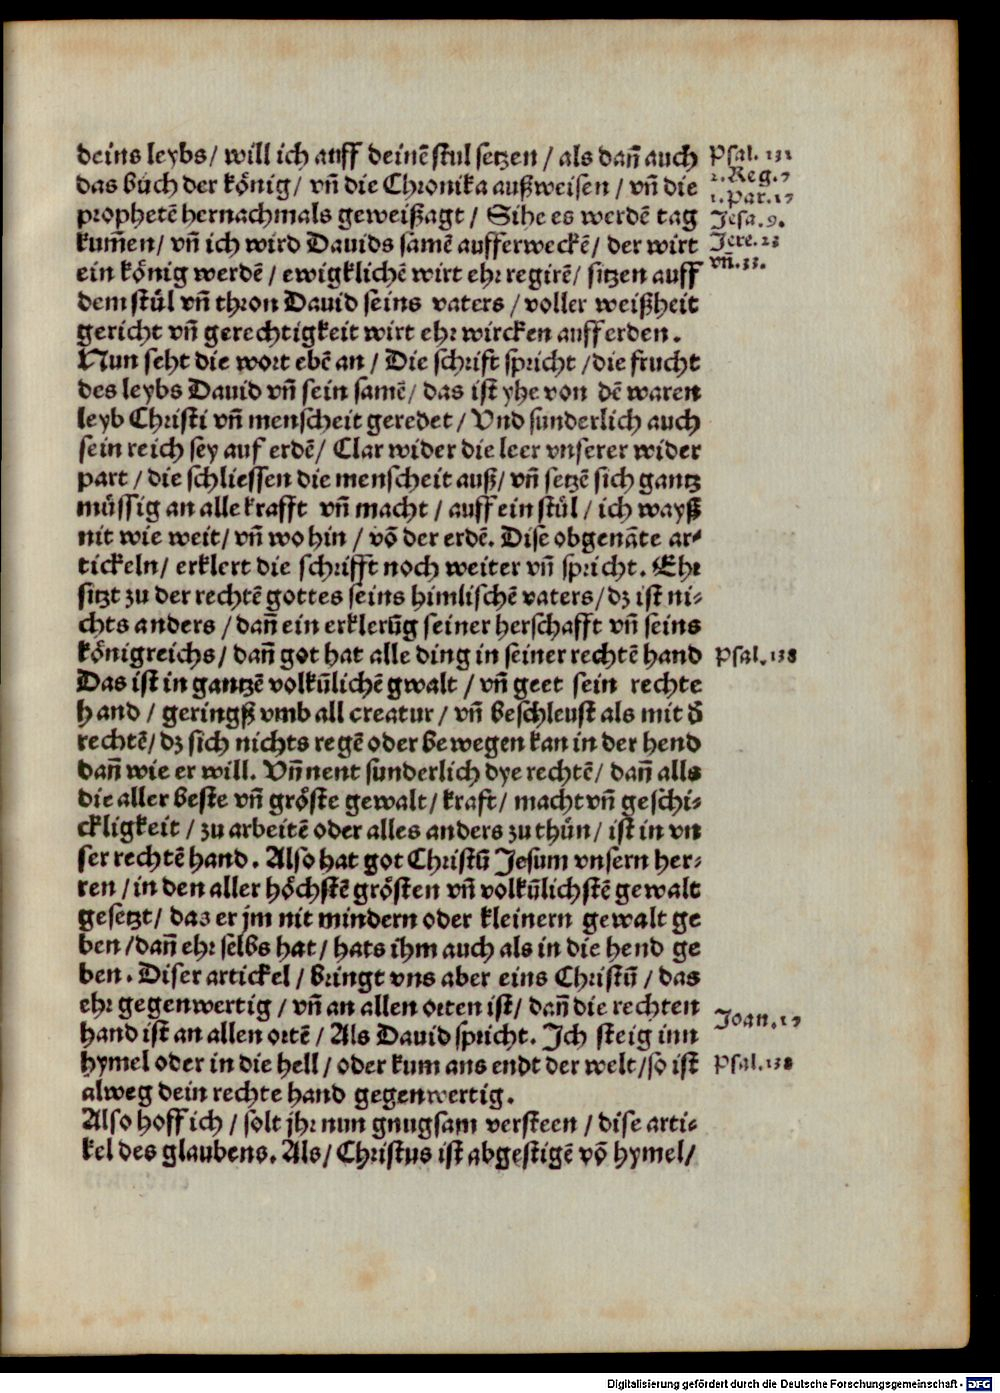 deins leybs/ will ich auff deinē stul setzen / als dañ auch
Psal. 131
das bůch der kőnig/ vñ die Chronika außweisen / vñ die
2. Reg. 7
1. Par. 17
prophetē hernachmals geweißagt / Sihe es werdē tag
Jesa. 9.
kum̄en/ vñ ich wird Dauids samē aufferweckē/ der wirt
Jere. 23
ein kőnig werdē / ewigklichē wirt ehr regirē/ sitzen auff
vñ. 33.
dem stůl vñ thron Dauid seins vaters / voller weißheit
gericht vñ gerechtigkeit wirt ehr wircken auff erden.
Nun seht die wort ebē an / Die schrift spricht /die frucht
des leybs Dauid vñ sein samē/ das ist yhe von dē waren
leyb Christi vñ menscheit geredet / Vnd sunderlich auch
sein reich sey auf erdē/ Clar wider die leer vnserer wider
part / die schliessen die menscheit auß/ vñ setzē sich gantz
můssig an alle krafft vñ macht / auff ein stůl / ich wayß
nit wie weit/ vñ wo hin / vō der erdē. Dise obgenāte ar-
tickeln/ erklert die schrifft noch weiter vñ spricht. Ehr
sitzt zu der rechtē gottes seins himlischē vaters/ dz ist ni-
chts anders / dañ ein erklerūg seiner herschafft vñ seins
kőnigreichs/ dañ got hat alle ding in seiner rechtē hand
Psal. 138
Das ist in gantzē volkūlichē gwalt / vñ geet sein rechte
hand / geringß vmb all creatur / vñ beschleust als mit d̄
rechtē/ dz sich nichts regē oder bewegen kan in der hend
dañ wie er will. Vñ nent sunderlich dye rechtē/ dañ alls
die aller beste vñ grőste gewalt/ kraft/ macht vñ geschi-
ckligkeit / zu arbeitē oder alles anders zu thůn/ ist in vn
ser rechtē hand. Also hat got Christū Jesum vnsern her-
ren / in den aller hőchstē grősten vñ volkūlichstē gewalt
gesetzt/ das er jm nit mindern oder kleinern gewalt ge
ben /dañ ehr selbs hat/ hats ihm auch als in die hend ge
ben. Diser artickel / bringt vns aber eins Christū / das
ehr gegenwertig / vñ an allen orten ist/ dañ die rechten
hand ist an allen ortē / Als Dauid spricht. Ich steig inn
Joan. 17
hymel oder in die hell / oder kum ans endt der welt/so ist
Psal. 138
alweg dein rechte hand gegenwertig.
Also hoff ich / solt jhr nun gnugsam versteen / dise arti-
kel des glaubens. Als/ Christus ist abgestigē vō hymel/
Digitalisierung gefördert durch die Deutsche Forschungsgemeinschaft - DFG